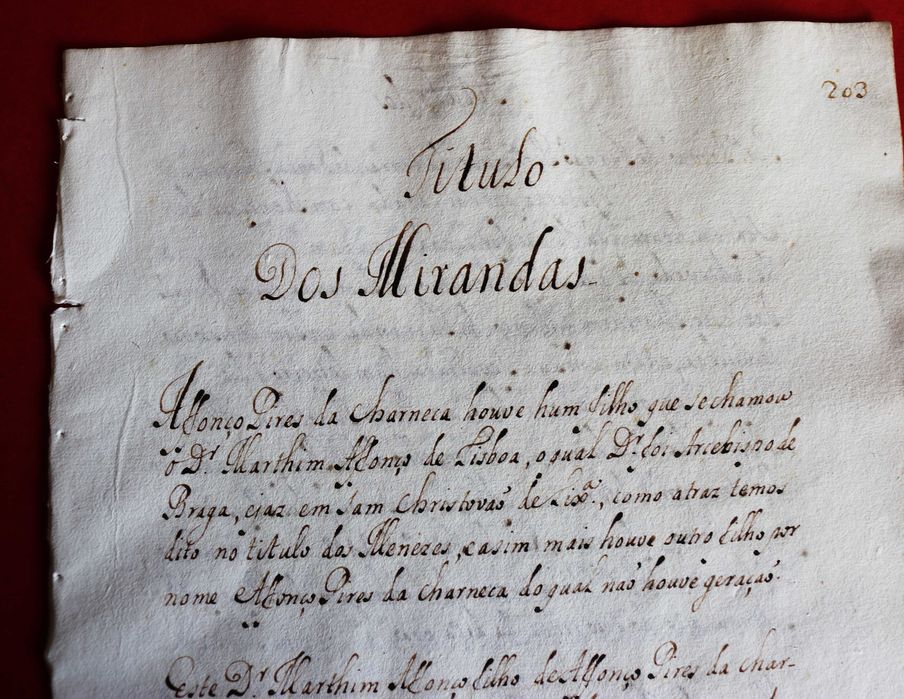 203
Titulo
Dos Mirandas
Affonço Pires da Charneca houve hum filho que se chamou
o D.r Marthim Affonço de Lisboa, o qual D.r foi Arcebispo de
Braga, ejaz em Sam Christovaõ de Lix.a, como atraz temos
dito no titulo dos Menezes, easim mais houve outro filho por
nome Affonço Pires da Charneca do qual naõ houve geraçaõ.
Este D.r Marthim Affonço filho de Affonço Pires da Char-